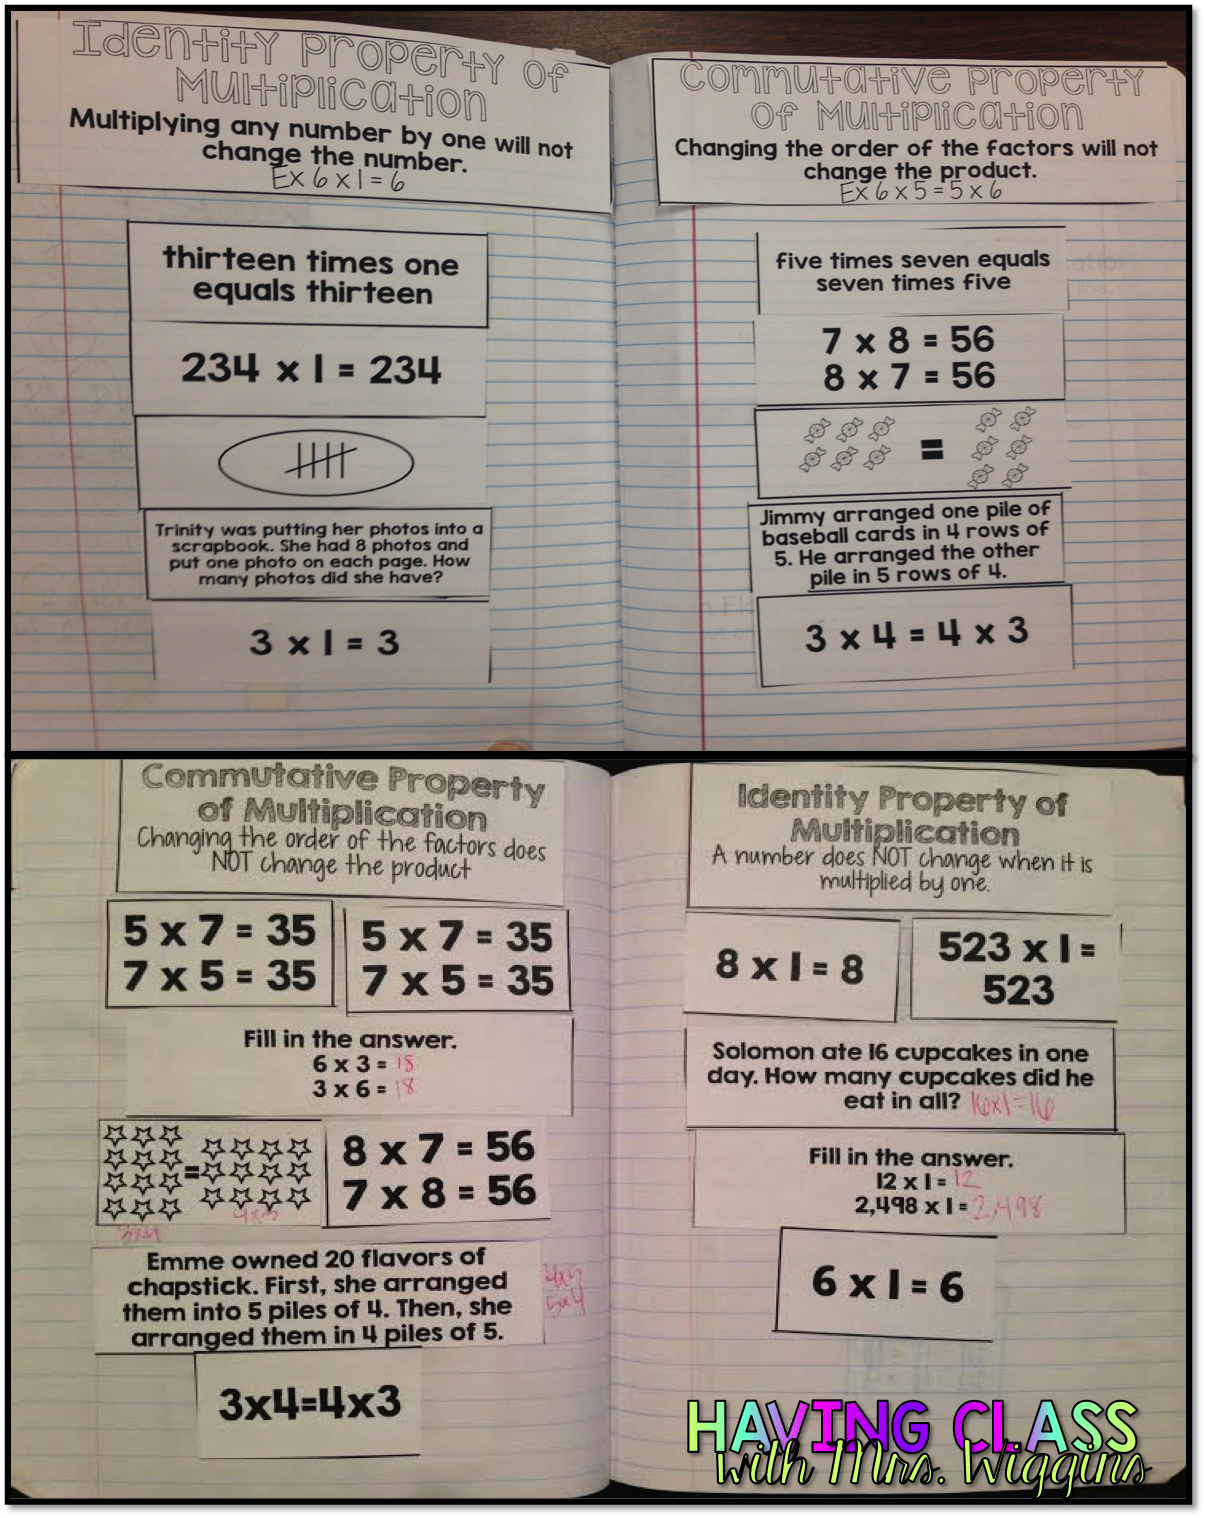 Identity Property of
Multiplication
Multiplying any number by one will not
change the number.
Ex 6 x 1 = 6
thirteen times one
equals thirteen
234 x 1 = 234
Trinity was putting her photos into a
scrapbook. She had 8 photos and
put one photo on each page. How
many photos did she have?
3 x 1 = 3
Commutative Property
of Multiplication
Changing the order of the factors will not
change the product.
Ex 6 x 5 = 5 x 6
five times seven equals
seven times five
7 x 8 = 56
8 x 7 = 56
=
Jimmy arranged one pile of
baseball cards in 4 rows of
5. He arranged the other
pile in 5 rows of 4.
3 x 4 = 4 x 3
Commutative Property
of Multiplication
Changing the order of the factors does
NOT change the product
5 x 7 = 35
7 x 5 = 35
5 x 7 = 35
7 x 5 = 35
Fill in the answer.
6 x 3 = 18
3 x 6 = 18
=
3x4
4x3
8 x 7 = 56
7 x 8 = 56
Emme owned 20 flavors of
chapstick. First, she arranged
them into 5 piles of 4. Then, she
arranged them in 4 piles of 5.
4x5
5x4
3x4=4x3
Identity Property of
Multiplication
A number does NOT change when it is
multiplied by one.
8 x 1 = 8
523 x 1 =
523
Solomon ate 16 cupcakes in one
day. How many cupcakes did he
eat in all? 16x1=16
Fill in the answer.
12 x 1 = 12
2,498 x 1 = 2,498
6 x 1 = 6
HAVING CLASS
with Mrs. Wiggins